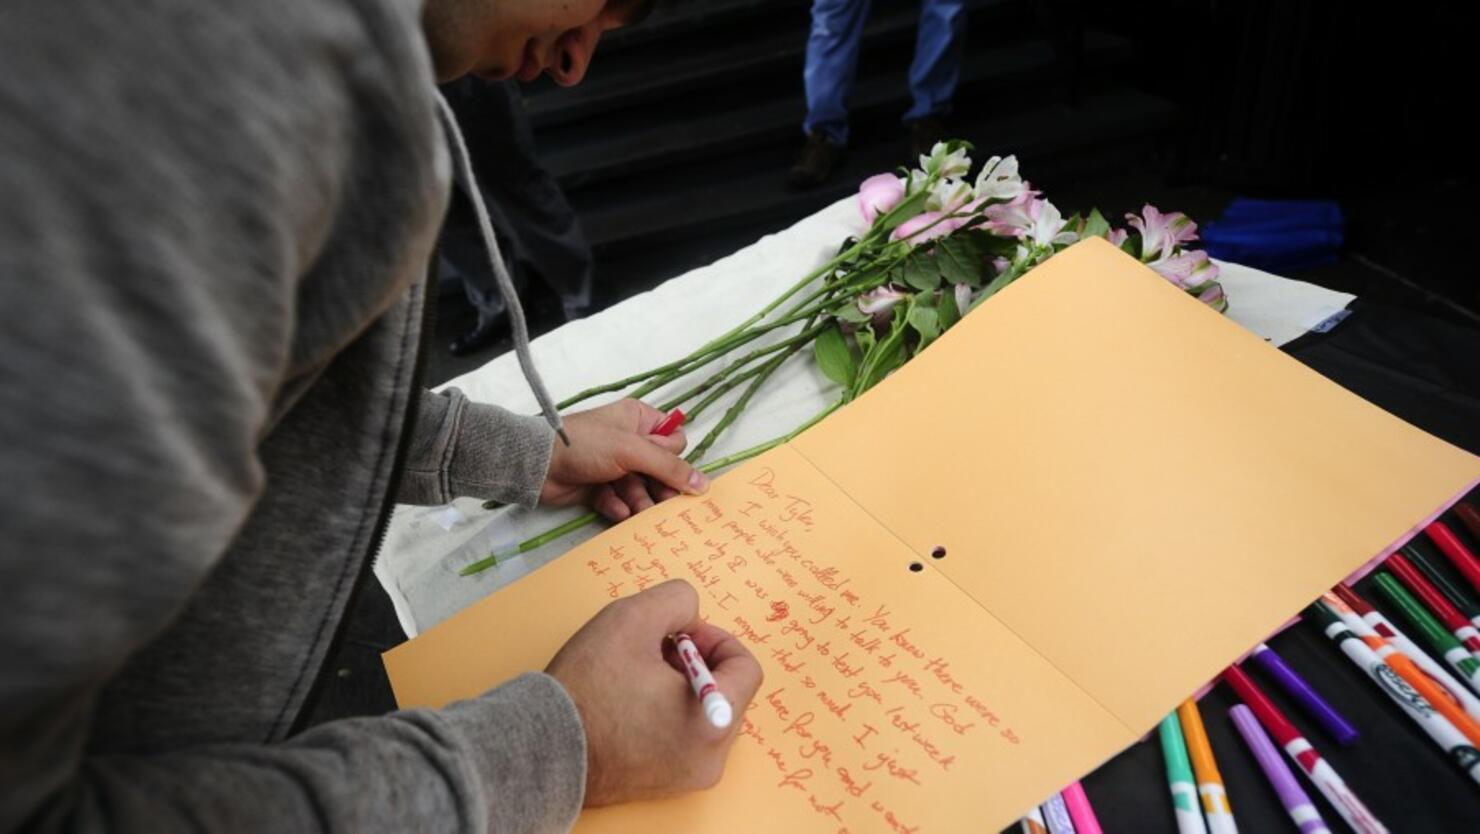 Dear Tyler,
I wish you called me. You know there were so
many people who were willing to talk to you. God
knows why I was going to text you last week
but I didn't. I regret that so much. I just
wish you
to be th here for you and want
out to give me for not